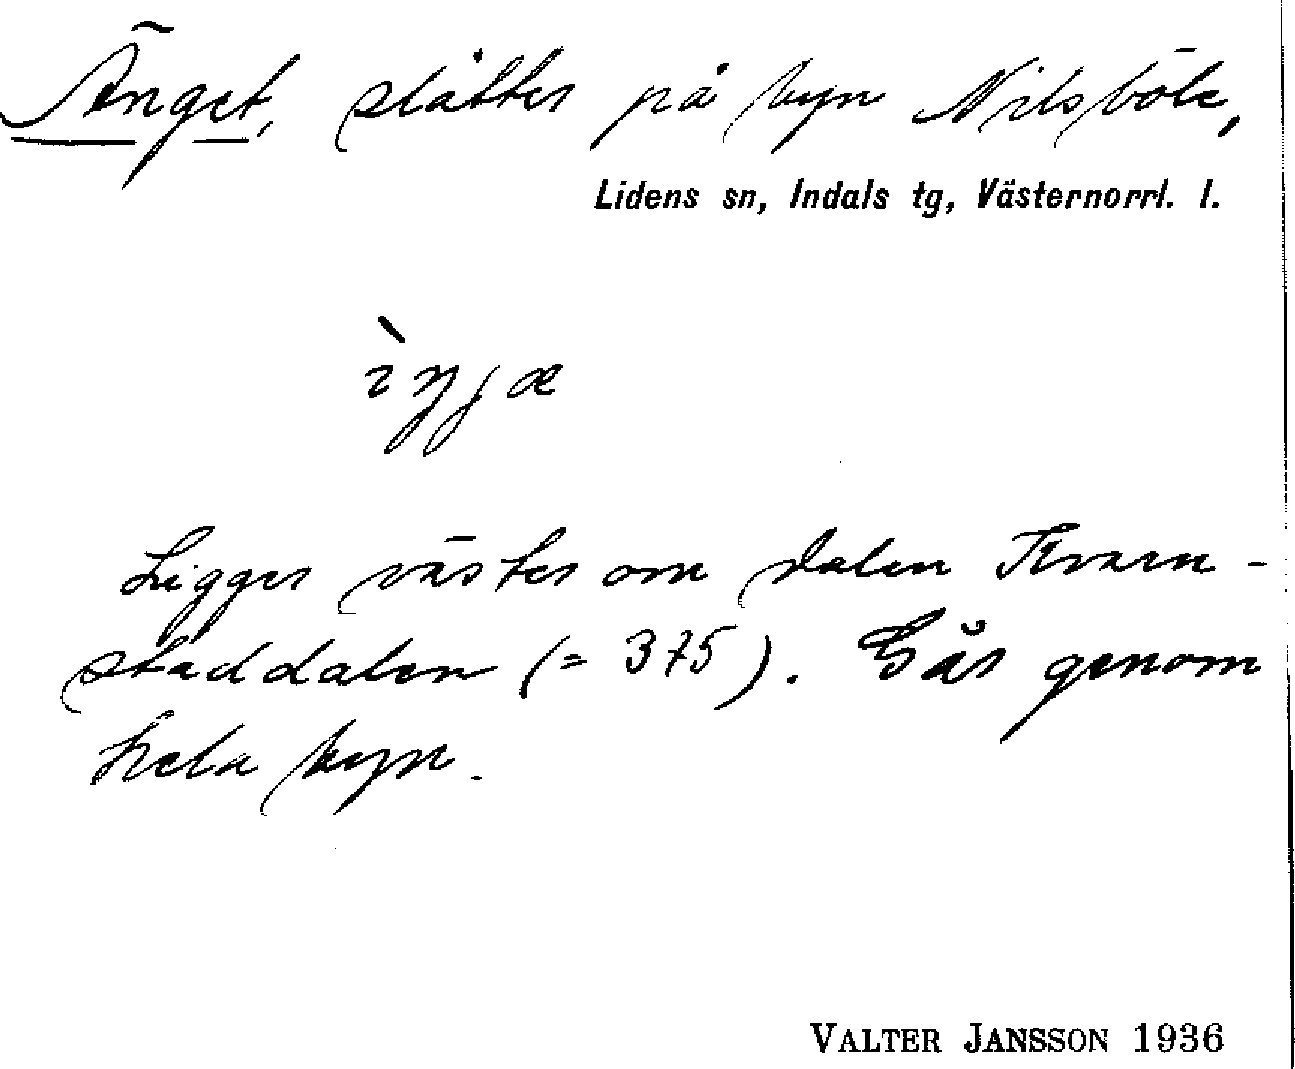 Änget, slåtter på byn Nilsböle,
Lidens sn, Indals tg, Västernorrl. l.
Ligger väster om dalen Kvarn-
staddalen (= 375). Går genom
hela byn.
VALTER JANSSON 1936